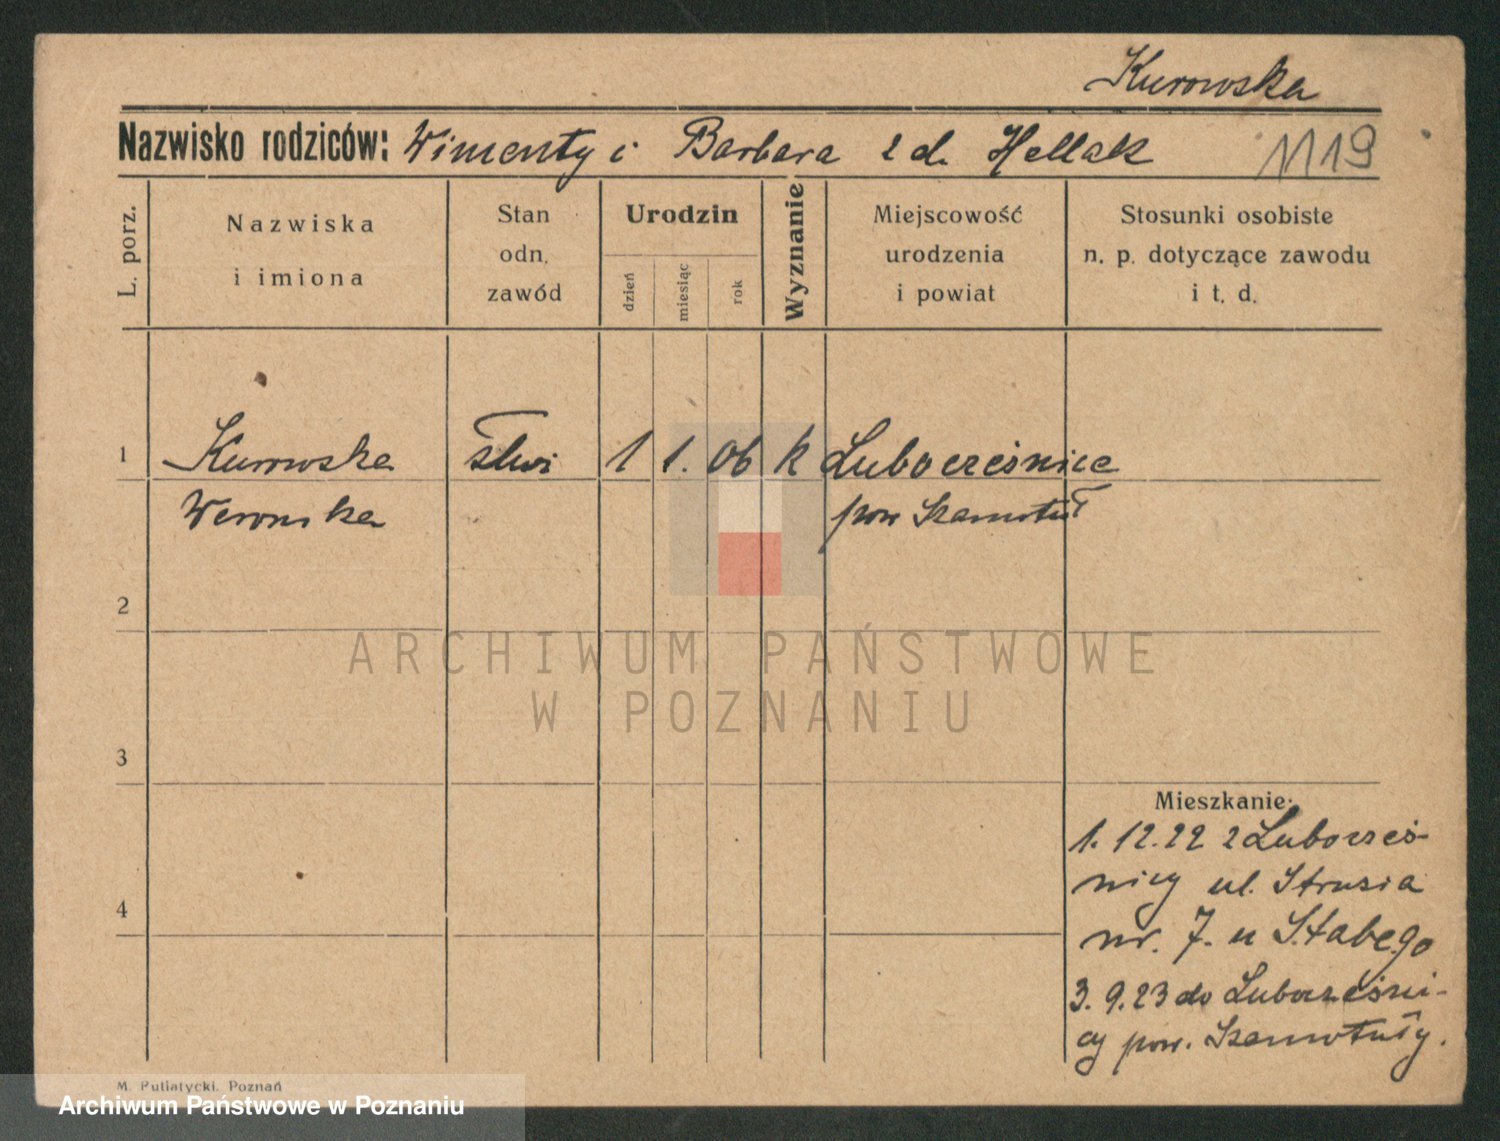 Kurowska
Nazwisko rodziców: Wincenty i Barbara z d. Hellak
1119
L. porz.
Nazwiska
i imiona
Stan
odn.
zawód
Urodzin
dzień
miesiąc
rok
Wyznanie
Miejscowość
urodzenia
i powiat
Stosunki osobiste
n. p. dotyczące zawodu
i t. d.
1 Kurowska 1 1. 06 k Lubocześnica
Weronika pow Szamotuł
2
3
4
Mieszkanie:
1. 12. 22 z Lubocześ-
nicy ul. Strusia
nr. 7. u Słabego
3. 9. 23 do Lubocześni-
cy pow. Szamotuły.
M. Putiatycki, Poznań
ARCHIWUM PAŃSTWOWE
W POZNANIU
Archiwum Państwowe w Poznaniu